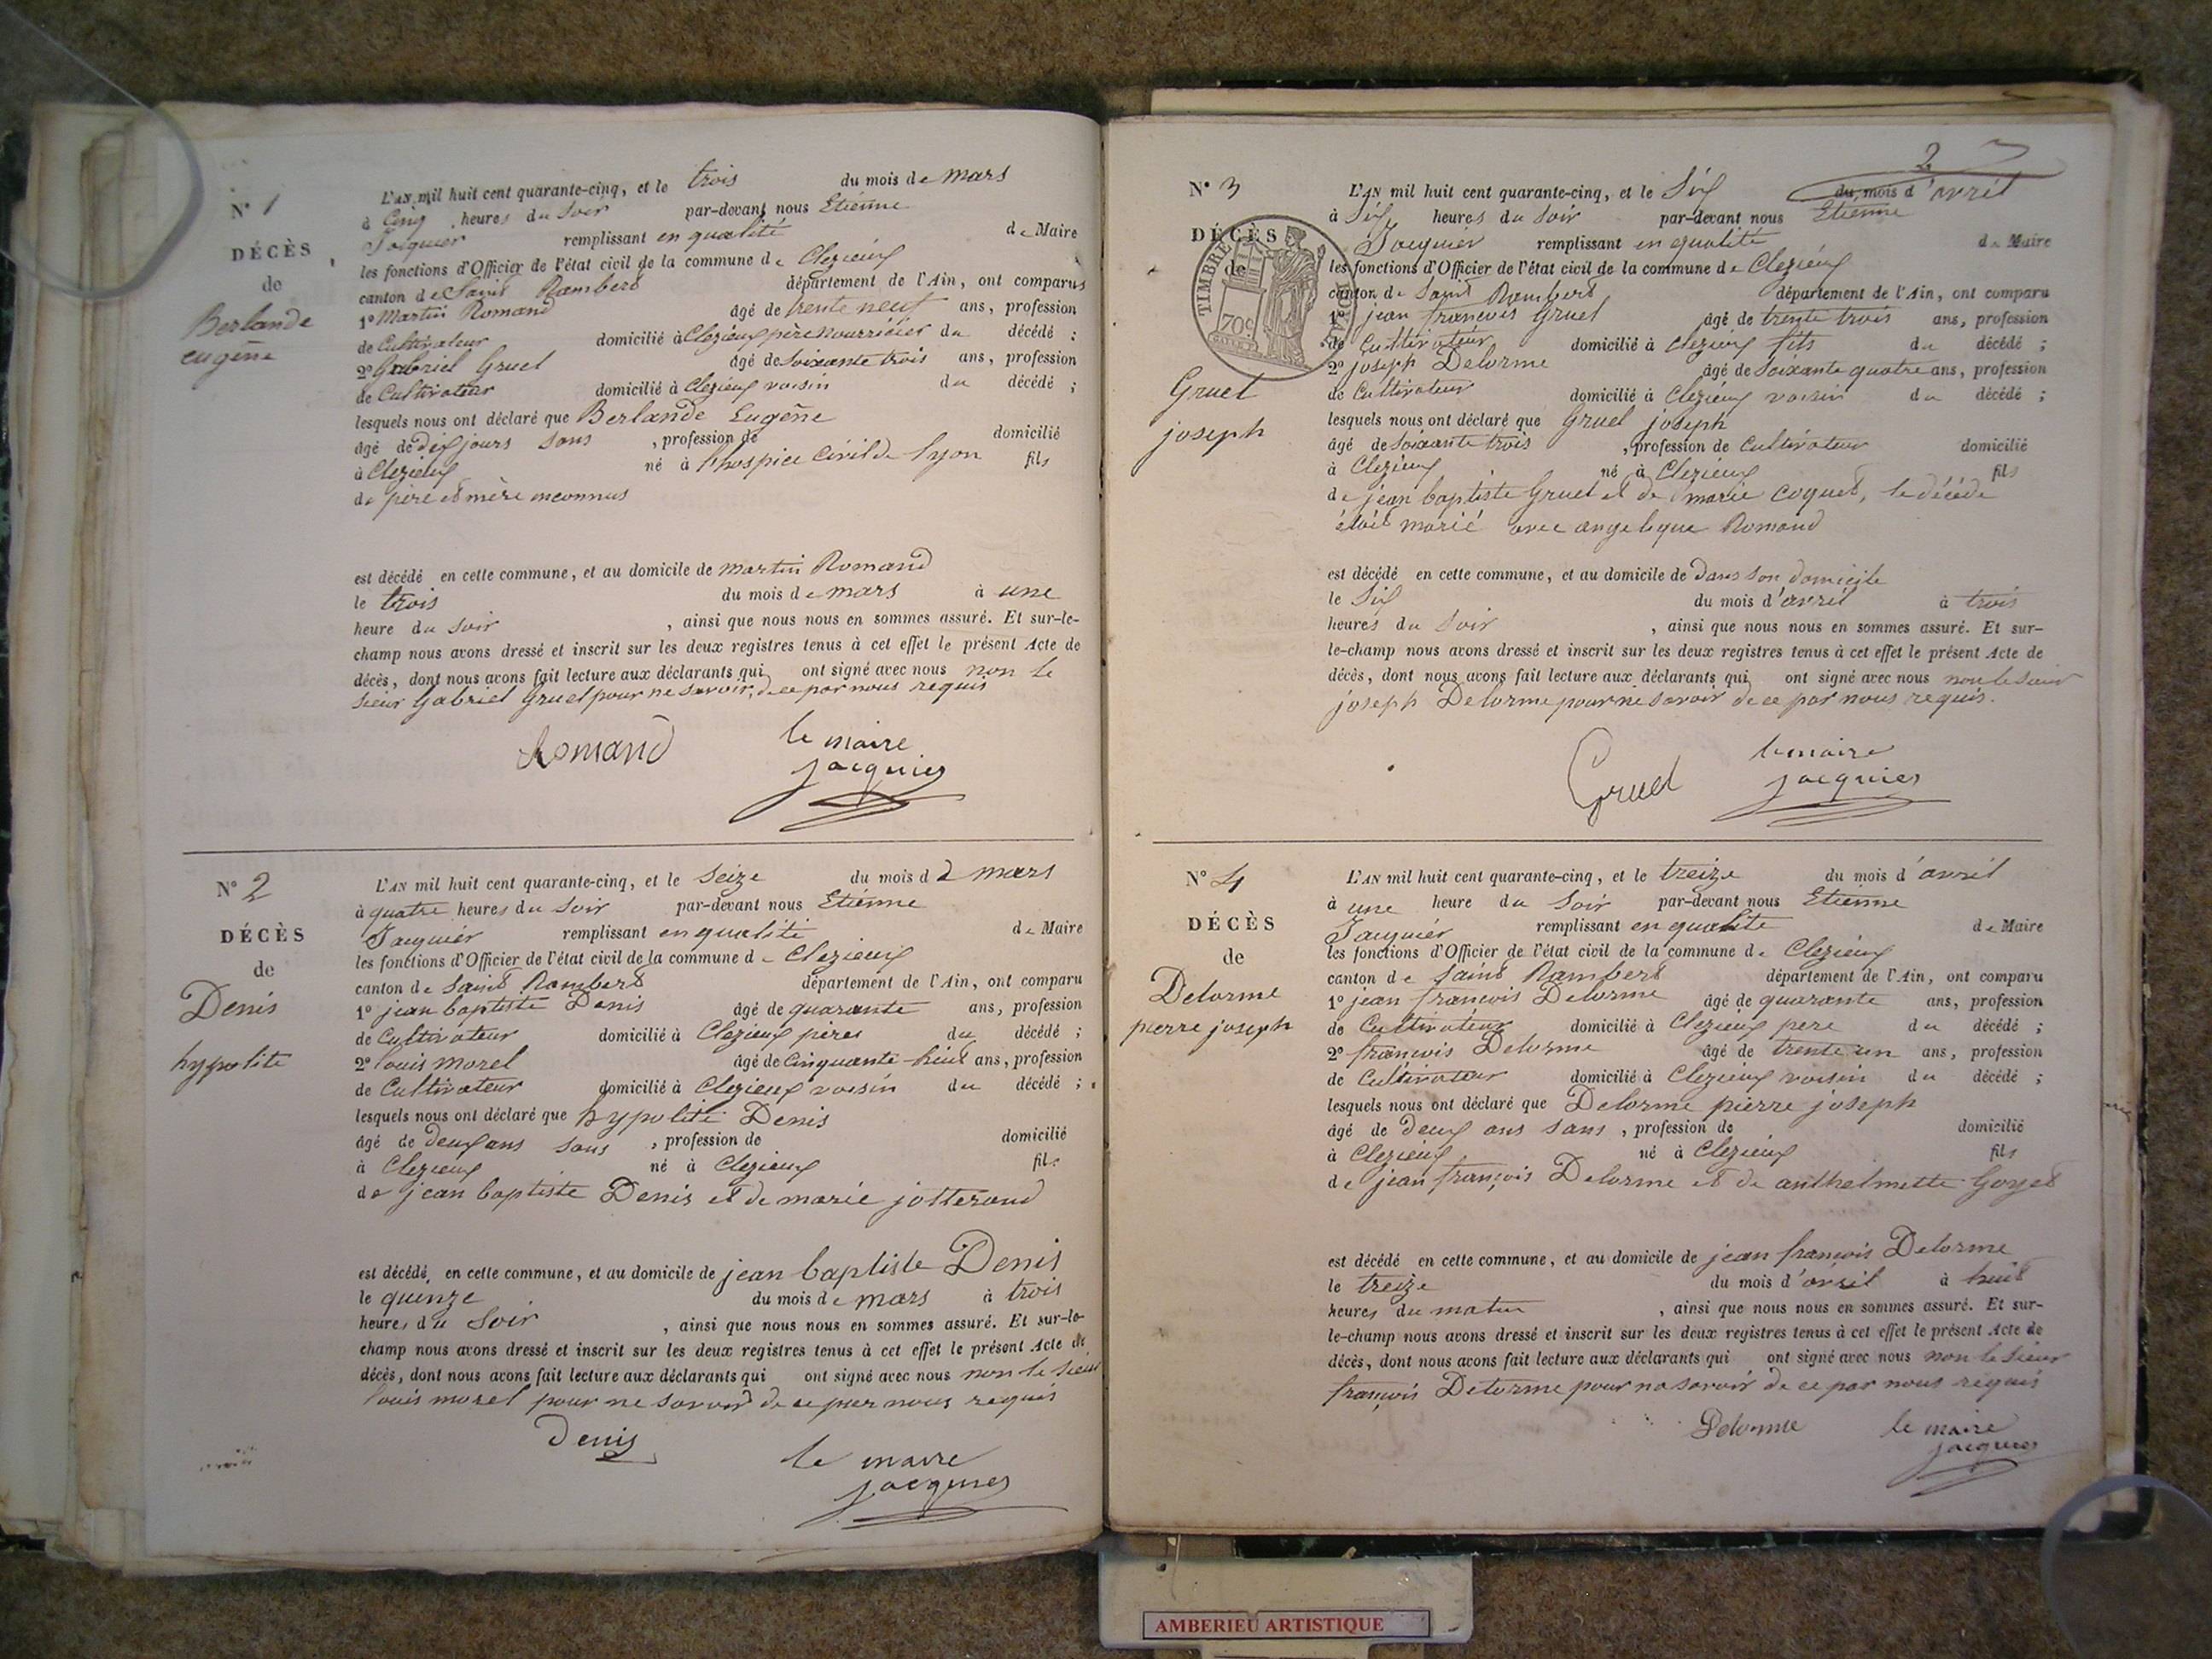 N° 1
DÉCÈS
de
Berlande
eugène
L'AN mil huit cent quarante-cinq, et le trois du mois de mars
à Cinq heures du soir par-devant nous Etienne
Jacquier remplissant en qualité de Maire
les fonctions d'Officier de l'état civil de la commune de Clezieux
canton de Saint Rambert département de l'Ain, ont comparus
1° Martin Romand âgé de trente neuf ans, profession
de Cultivateur domicilié à Clezieux père nourricier du décédé ;
2° Gabriel Gruel âgé de soixante trois ans, profession
de Cultivateur domicilié à Clezieux voisin du décédé ;
lesquels nous ont déclaré que Berlande Eugène
âgé de dix jours sans , profession de domicilié
à Clezieux né à l'hospice Civil de Lyon fils
de père et mère inconnus
est décédé en cette commune, et au domicile de martin Romand
le trois du mois de mars à une
heure du soir , ainsi que nous nous en sommes assuré. Et sur-le-
champ nous avons dressé et inscrit sur les deux registres tenus à cet effet le présent Acte de
décès, dont nous avons fait lecture aux déclarants qui ont signé avec nous non le
sieur Gabriel Gruel pour ne savoir, de ce par nous requis
Romand
le maire
jacquier
N° 2
DÉCÈS
de
Denis
hypolite
L'AN mil huit cent quarante-cinq, et le Seize du mois d 2 mars
à quatre heures du soir par-devant nous Etienne
Jacquier remplissant en qualité de Maire
les fonctions d'Officier de l'état civil de la commune de Clezieux
canton de Saint Rambert département de l'Ain, ont comparu
1° jean baptiste Denis âgé de quarante ans, profession
de Cultivateur domicilié à Clezieux pères du décédé ;
2° louis morel âgé de Cinquante-huit ans, profession
de Cultivateur domicilié à Clezieux voisin du décédé ;
lesquels nous ont déclaré que hypolite Denis
âgé de deux ans sans , profession de domicilié
à Clezieux né à Clezieux fils
de jean baptiste Denis et de marie jotterand
est décédé, en cette commune, et au domicile de jean baptiste Denis
le quinze du mois de mars à trois
heures du soir , ainsi que nous nous en sommes assuré. Et sur-le-
champ nous avons dressé et inscrit sur les deux registres tenus à cet effet le présent Acte de
décès, dont nous avons fait lecture aux déclarants qui ont signé avec nous non le sieur
louis morel pour ne savoir de ce par nous requis
Denis
le maire
jacquier
2
N° 3
DÉCÈS
de
TIMBRE
70c
Gruel
joseph
L'AN mil huit cent quarante-cinq, et le Six du mois d'avril
à Six heures du soir par-devant nous Etienne
Jacquier remplissant en qualité de Maire
les fonctions d'Officier de l'état civil de la commune de Clezieux
canton de Saint Rambert département de l'Ain, ont comparu
1° jean francois Gruel âgé de trente trois ans, profession
de Cultivateur domicilié à Clezieux fils du décédé ;
2° joseph Delorme âgé de soixante quatre ans, profession
de Cultivateur domicilié à Clezieux voisin du décédé ;
lesquels nous ont déclaré que Gruel joseph
âgé de soixante trois , profession de Cultivateur domicilié
à Clezieux né à Clezieux fils
de jean baptiste Gruel et de marie coquet, le décédé
était marié avec angelique Romand
est décédé en cette commune, et au domicile de dans son domicile
le Six du mois d'avril à trois
heures du soir , ainsi que nous nous en sommes assuré. Et sur-
le-champ nous avons dressé et inscrit sur les deux registres tenus à cet effet le présent Acte de
décès, dont nous avons fait lecture aux déclarants qui ont signé avec nous non le sieur
joseph Delorme pour ne savoir de ce par nous requis.
Gruel
le maire
jacquier
N° 4
DÉCÈS
de
Delorme
pierre joseph
L'AN mil huit cent quarante-cinq, et le treize du mois d'avril
à une heure du soir par-devant nous Etienne
Jacquier remplissant en qualité de Maire
les fonctions d'Officier de l'état civil de la commune de Clezieux
canton de Saint Rambert département de l'Ain, ont comparu
1° jean francois Delorme âgé de quarante ans, profession
de Cultivateur domicilié à Clezieux pere du décédé ;
2° francois Delorme âgé de trente un ans, profession
de Cultivateur domicilié à Clezieux voisin du décédé ;
lesquels nous ont déclaré que Delorme pierre joseph
âgé de deux ans sans , profession de domicilié
à Clezieux né à Clezieux fils
de jean françois Delorme et de anthelmette Goyet
est décédé en cette commune, et au domicile de jean francois Delorme
le treize du mois d'avril à huit
heures du matin , ainsi que nous nous en sommes assuré. Et sur-
le-champ nous avons dressé et inscrit sur les deux registres tenus à cet effet le présent Acte de
décès, dont nous avons fait lecture aux déclarants qui ont signé avec nous non le sieur
françois Delorme pour ne savoir de ce par nous requis
Delorme
le maire
jacquier
AMBERIEU ARTISTIQUE